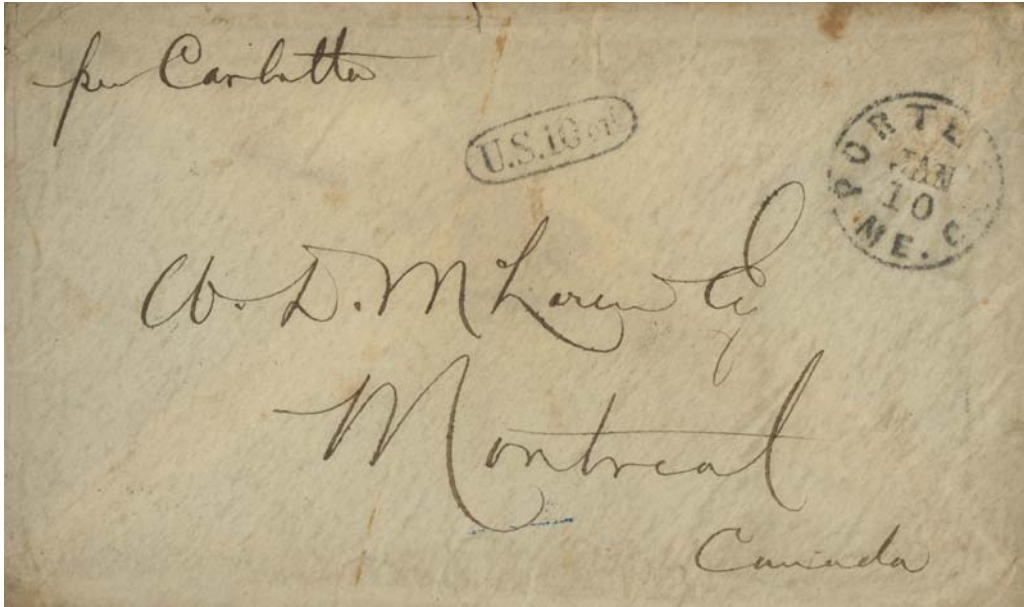 per Carlotta
U.S. 10 cts
PORTL
JAN
10
ME.
W. D. McLaren Esq
Montreal
Canada